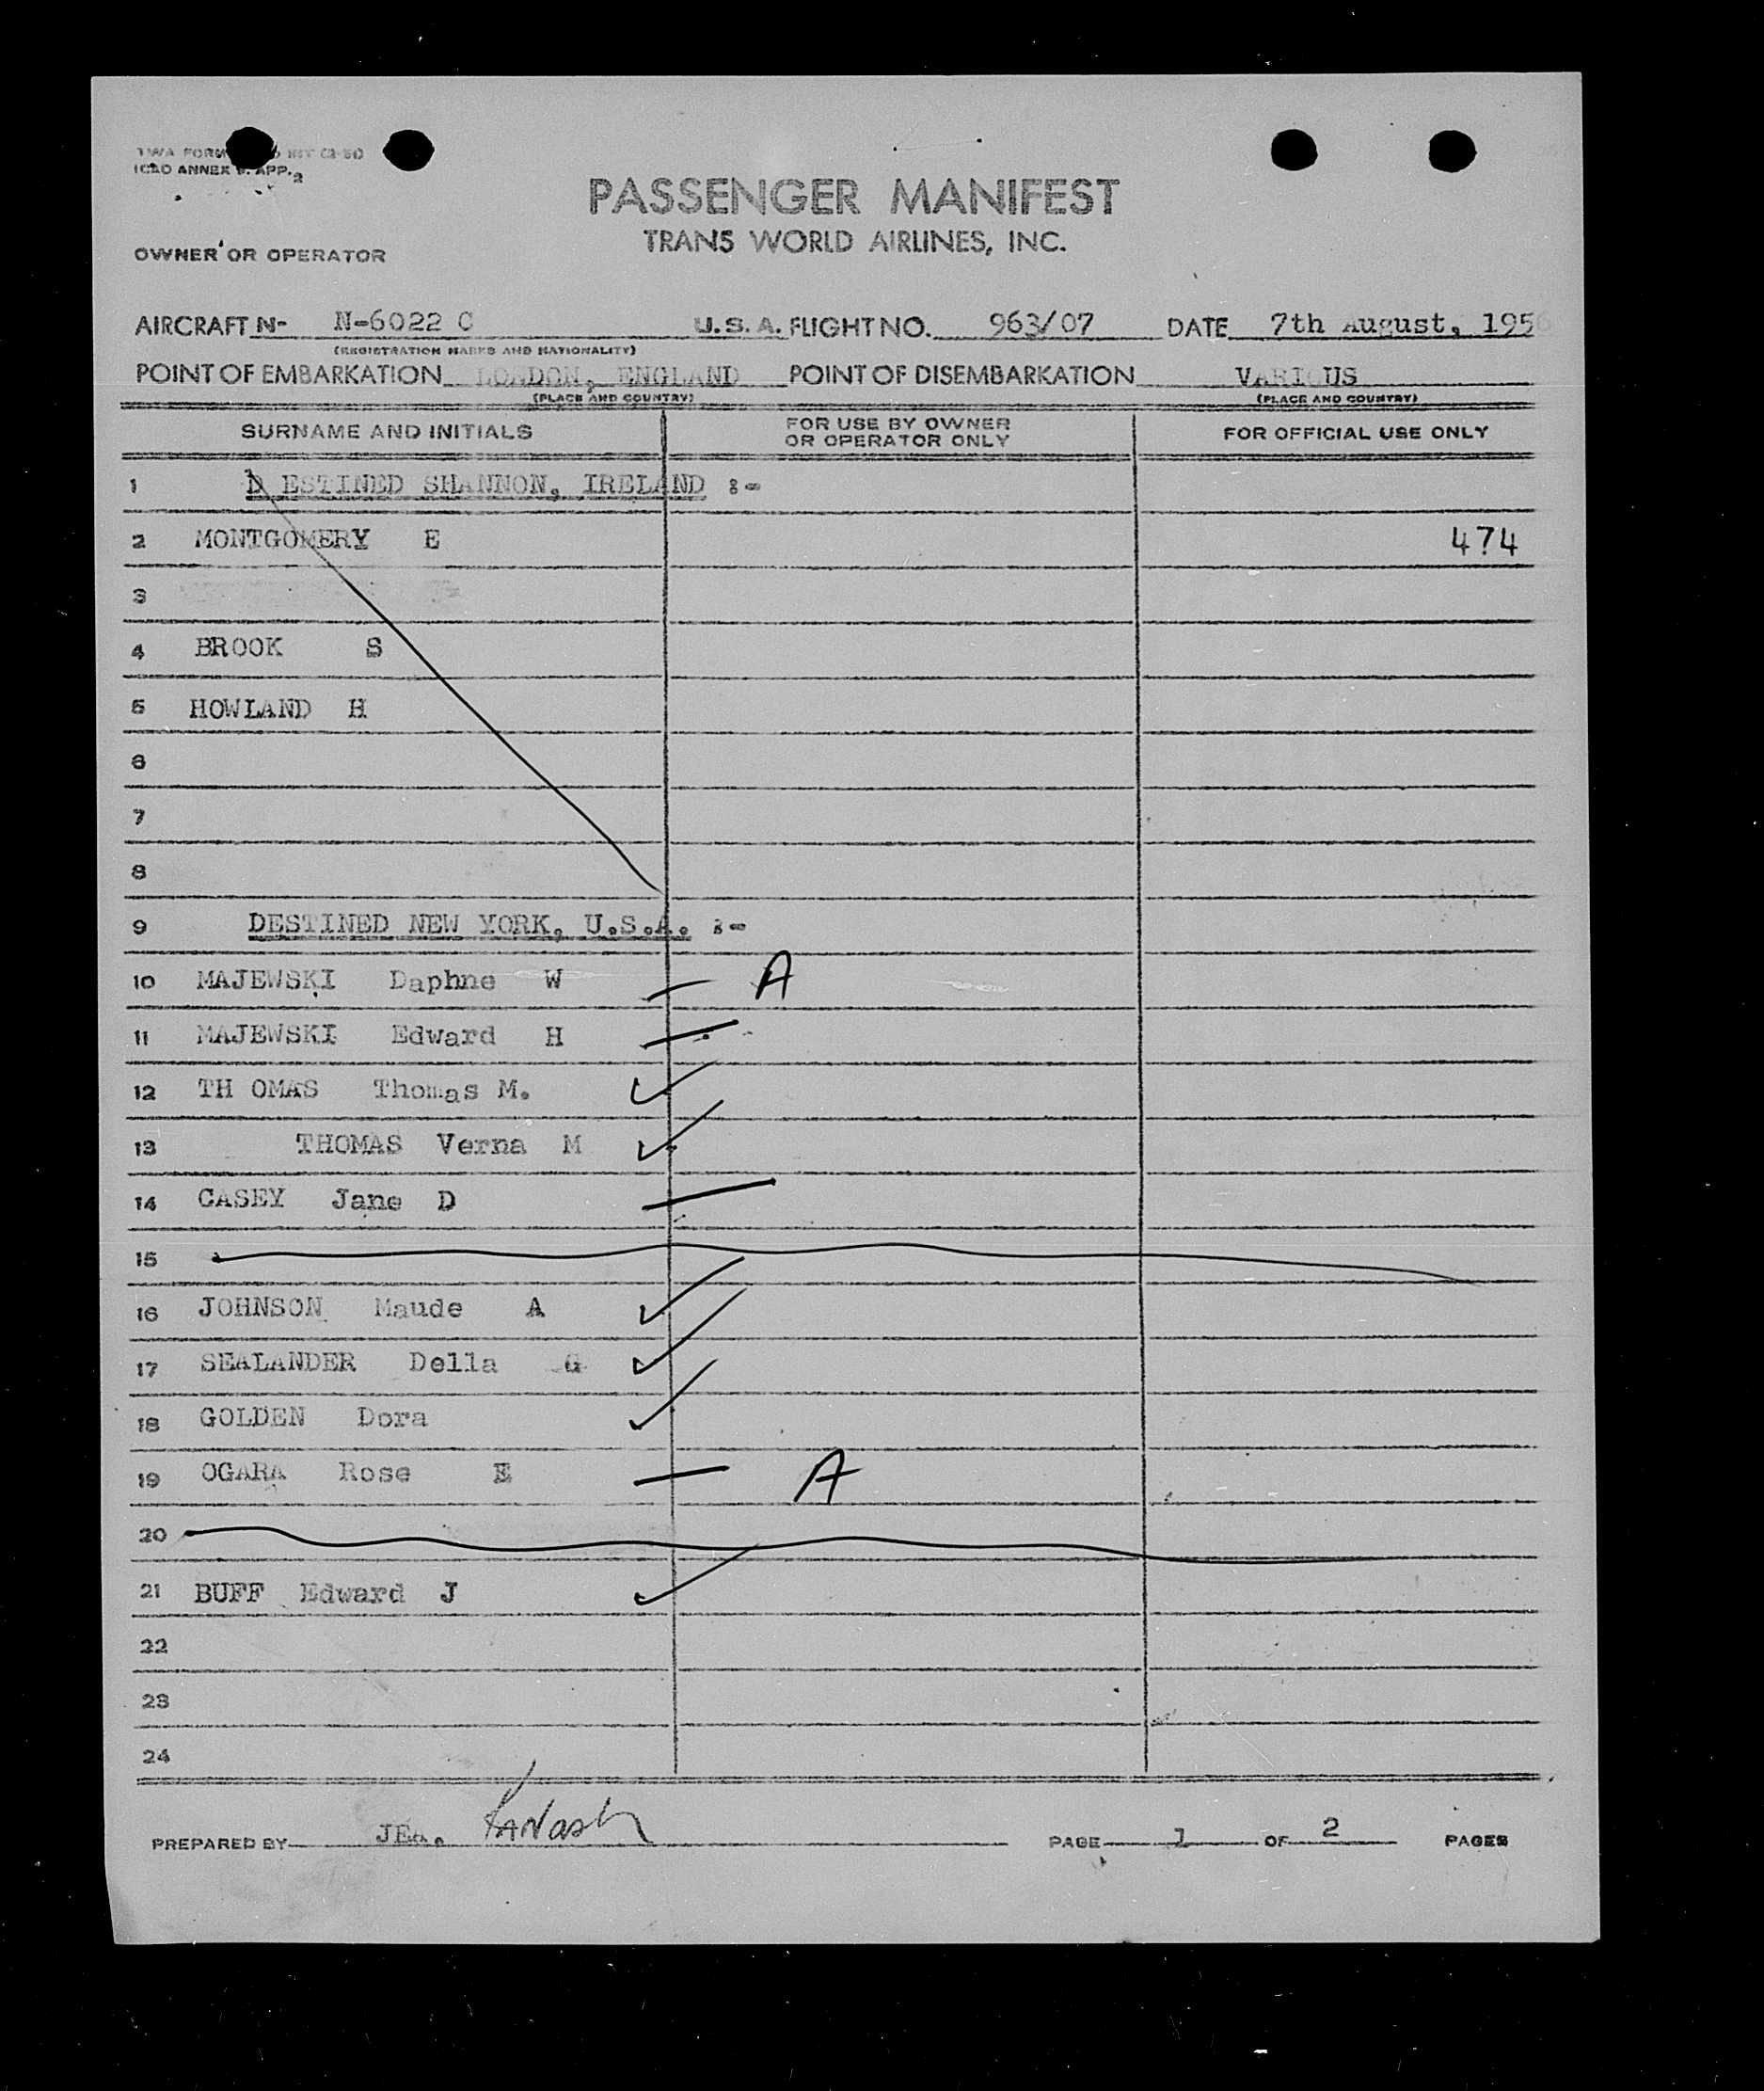 TWA FORM
ICAO ANNEX 9. APP. 2
PASSENGER MANIFEST
TRANS WORLD AIRLINES, INC.
OWNER OR OPERATOR
AIRCRAFT N- N-6022 C U.S.A. FLIGHT NO. 963/07 DATE 7th August, 1956
(REGISTRATION MARKS AND NATIONALITY)
POINT OF EMBARKATION LONDON, ENGLAND POINT OF DISEMBARKATION VARIOUS
(PLACE AND COUNTRY) (PLACE AND COUNTRY)
SURNAME AND INITIALS FOR USE BY OWNER OR OPERATOR ONLY FOR OFFICIAL USE ONLY
1 D ESTINED SHANNON, IRELAND :-
2 MONTGOMERY E 474
3
4 BROOK S
5 HOWLAND H
6
7
8
9 DESTINED NEW YORK, U.S.A. :-
10 MAJEWSKI Daphne W A
11 MAJEWSKI Edward H
12 TH OMAS Thomas M.
13 THOMAS Verna M
14 CASEY Jane D
15
16 JOHNSON Maude A
17 SEALANDER Della G
18 GOLDEN Dora
19 OGARA Rose E A
20
21 BUFF Edward J
22
23
24
PREPARED BY JEA. PAGE 1 OF 2 PAGES